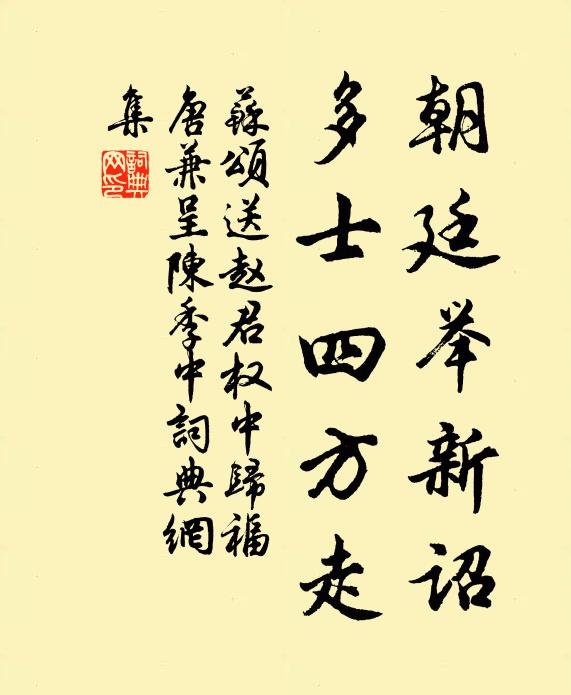 朝廷举新诏
多士四方走
蘇頌送赵君权中歸福
唐兼呈陳季中詞典網
集
詞典網印